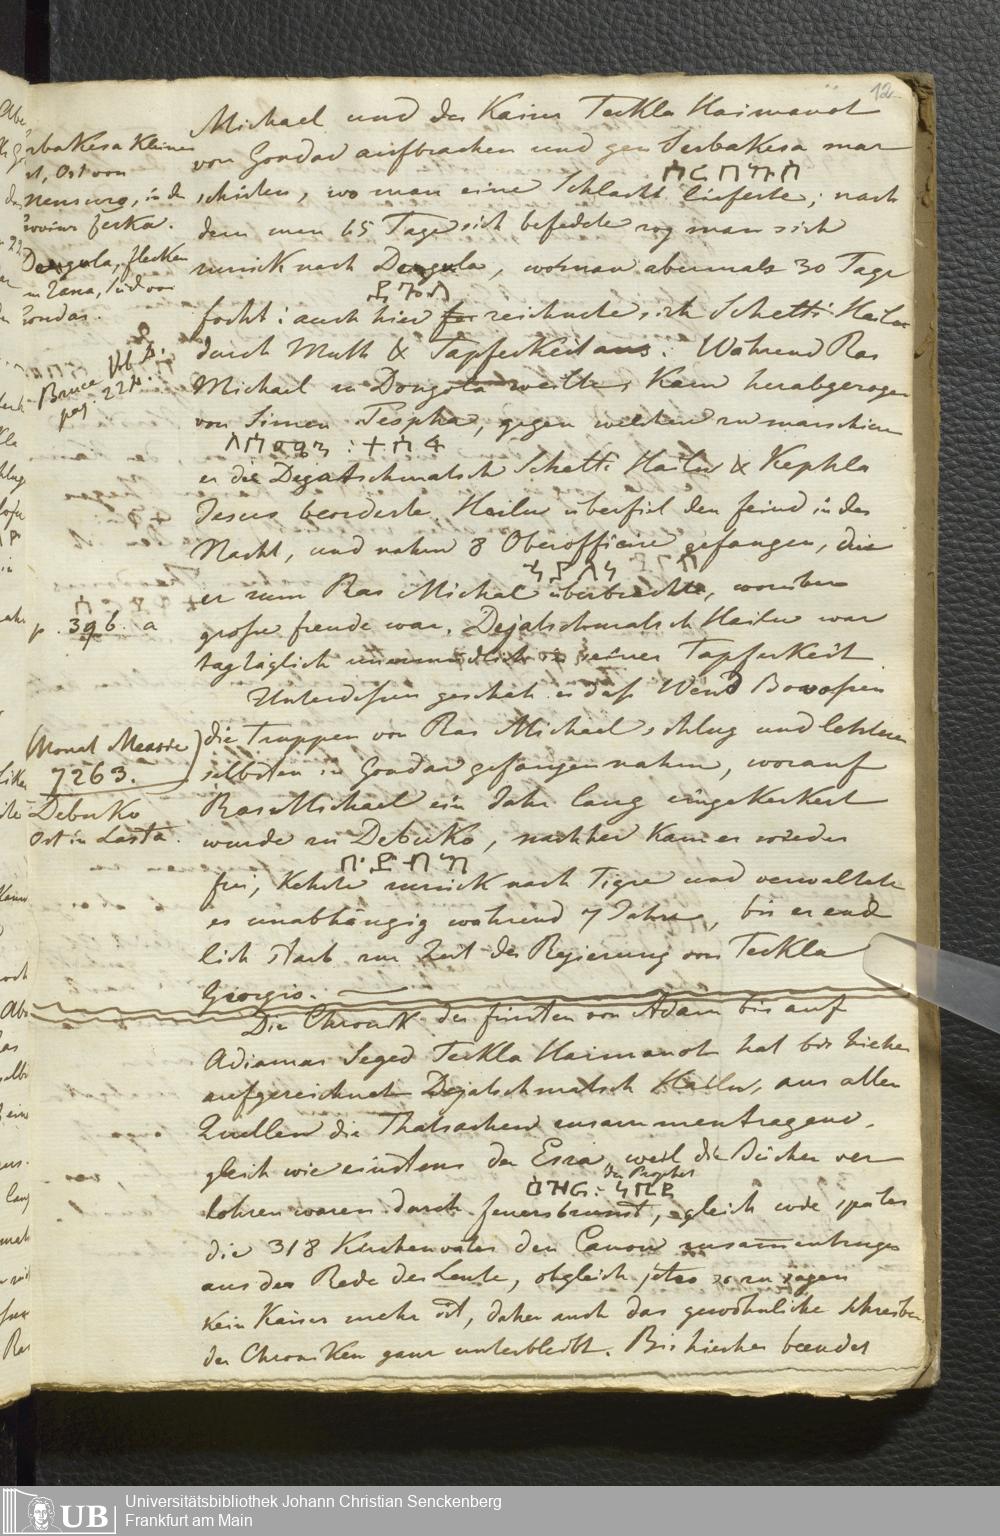 12
Michael und der Kaiser Teckla Haimanot
von Gondar aufbrachen und gen Serbakesa mar
schirten, wo man eine Schlacht lieferte; nach
dem man 65 Tage sich befedete zog man sich
zurück nach Dengula, wo man abermals 30 Tage
focht: auch hier zeichnete sich Schetti Hailu
durch Muth & Tapferkeit aus. Während Ras
Michael in Dongola weilte, kam herabgezogen
von Simen Tespha, gegen welchen zu marschiren
er die Dejatschmatsch Schetti Hailu & Kephla
Jesus beorderte, Hailu überfiel den feind in der
Nacht, und nahm 8 Oberofficire gefangen, die
er zum Ras Michael überbrachte, worüber
große freude war. Dejatschmatsch Hailu war
tagtäglich unermüdlich in seiner Tapferkeit
Unterdessen geschah es daß Wend Bowossen
die Truppen von Ras Michael schlug und letztern
selbsten in Gondar gefangen nahm, worauf
Ras Michael ein Jahr lang eingekerkert
wurde zu Debuko, nachher kam er wieder
frei, kehrte zurück nach Tigre und verwaltete
es unabhängig während 7 Jahre, bis er end
lich starb zur Zeit der Regierung von Teckla
Georgis.
Die Chronik der fürsten von Adam bis auf
Adiamas Seged Teckla Haimanot hat bis hieher
aufgezeichnet Dejatschmatsch Hailu, aus allen
Quellen die Thatsachen zusammentragend,
gleich wie einstens der Esra, weil die Bücher ver
der Prophet
lohren waren durch feuersbrunst, gleich wie später
die 318 Kirchenväter den Canon zusammentrugen
aus der Rede der Leute, obgleich jetzo so zu sagen
kein Kaiser mehr ist, daher auch das gewöhnliche Schreiben
der Chroniken ganz unterbleibt. Bis hieher beendet
Serbakesa Kleiner
Ort, Ost von
Dengula, flecken
in Zana, Süd von
Gondar.
Bruce Vol.
pag. 224.
p. 396. a
Monat Mearir
7263.
Debuko
Ort in Lasta.
Universitätsbibliothek Johann Christian Senckenberg
Frankfurt am Main
UB